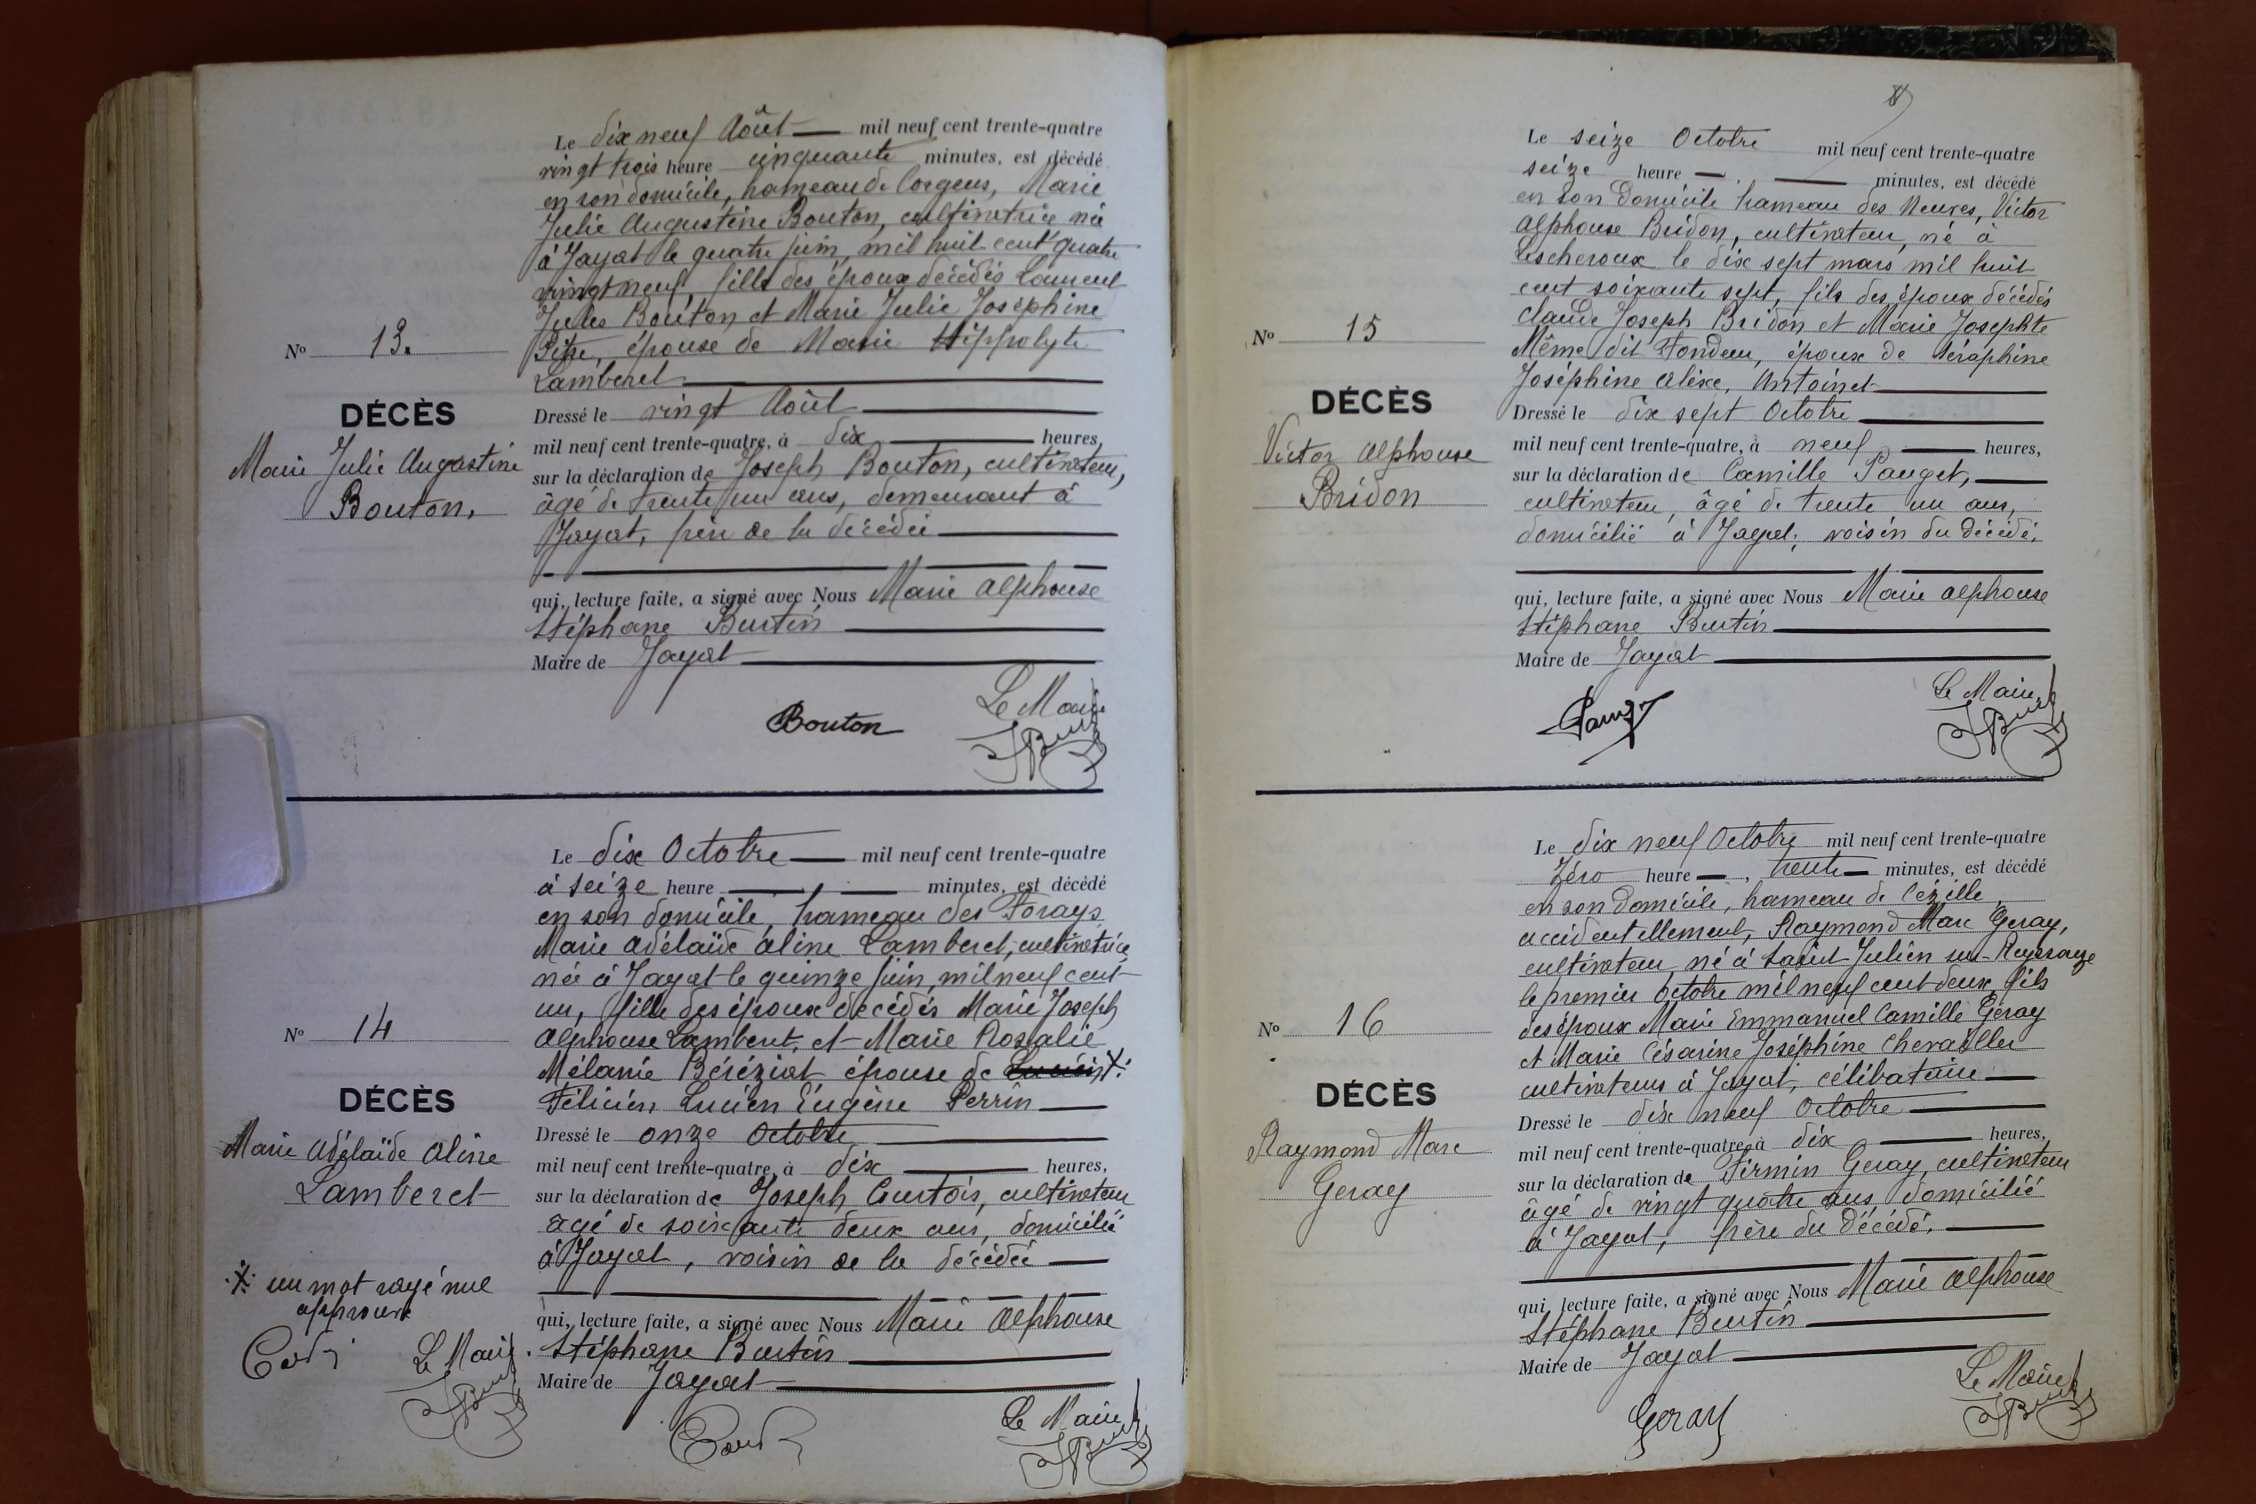 Le dix neuf Août mil neuf cent trente-quatre
vingt trois heure cinquante minutes, est décédé
en son domicile, hameau de Corgeus, Marie
Julie Augustine Bouton, cultivatrice née
à Jayat le quatre juin, mil huit cent quatre
vingt neuf, fille des époux décédés Laurent
Jules Bouton et Marie Julie Joséphine
Pitre, épouse de Marie Hippolyte
Lamberet
Dressé le vingt Août
mil neuf cent trente-quatre, à dix heures,
sur la déclaration de Joseph Bouton, cultivateur,
âgé de trente un ans, demeurant à
Jayat, frère de la décédée
qui, lecture faite, a signé avec Nous Marie Alphonse
Stéphane Burtin
Maire de Jayat
Bouton
Le Maire
Nº 13.
DÉCÈS
Marie Julie Augustine
Bouton,
Le dix Octobre mil neuf cent trente-quatre
à seize heure minutes, est décédé
en son domicile, hameau des Forays
Marie Adélaïde Aline Lamberet, cultivatrice
née à Jayat le quinze juin, mil neuf cent
un, fille des époux décédés Marie Joseph
Alphonse Lamberet, et Marie Rosalie
Mélanie Béréziat épouse de Lucien
Félicien Lucien Eugène Perrin
Dressé le onze Octobre
mil neuf cent trente-quatre, à dix heures,
sur la déclaration de Joseph Curtois, cultivateur
âgé de soixante deux ans, domicilié
à Jayat, voisin de la décédée
qui, lecture faite, a signé avec Nous Marie Alphonse
Stéphane Burtin
Maire de Jayat
Le Maire
Nº 14
DÉCÈS
Marie Adélaïde Aline
Lamberet
un mot rayé nul
approuvé
Le Maire
Le seize Octobre mil neuf cent trente-quatre
seize heure minutes, est décédé
en son domicile hameau des Neuves, Victor
Alphonse Bridon, cultivateur, né à
Lescheroux le dix sept mars mil huit
cent soixante sept, fils des époux décédés
Claude Joseph Bridon et Marie Josephte
Même dit Fondeur, époux de Séraphine
Joséphine Alexe, Antoinet
Dressé le dix sept Octobre
mil neuf cent trente-quatre, à neuf heures,
sur la déclaration de Camille Pauget,
cultivateur, âgé de trente un ans,
domicilié à Jayat, voisin du décédé.
qui, lecture faite, a signé avec Nous Marie Alphonse
Stéphane Burtin
Maire de Jayat
Le Maire
Nº 15
DÉCÈS
Victor Alphonse
Bridon
Le dix neuf Octobre mil neuf cent trente-quatre
Zéro heure , trente minutes, est décédé
en son domicile, hameau de Cézille
accidentellement, Raymond Marc Geray,
cultivateur, né à Saint Julien sur Reyssouze
le premier Octobre mil neuf cent deux, fils
des époux Marie Emmanuel Camille Geray
et Marie Césarine Joséphine Chevaillet
cultivateurs à Jayat, célibataire
Dressé le dix neuf Octobre
mil neuf cent trente-quatre, à dix heures,
sur la déclaration de Firmin Geray, cultivateur
âgé de vingt quatre ans domicilié
à Jayat, frère du décédé.
qui, lecture faite, a signé avec Nous Marie Alphonse
Stéphane Burtin
Maire de Jayat
Geray
Le Maire
Nº 16
DÉCÈS
Raymond Marc
Geray